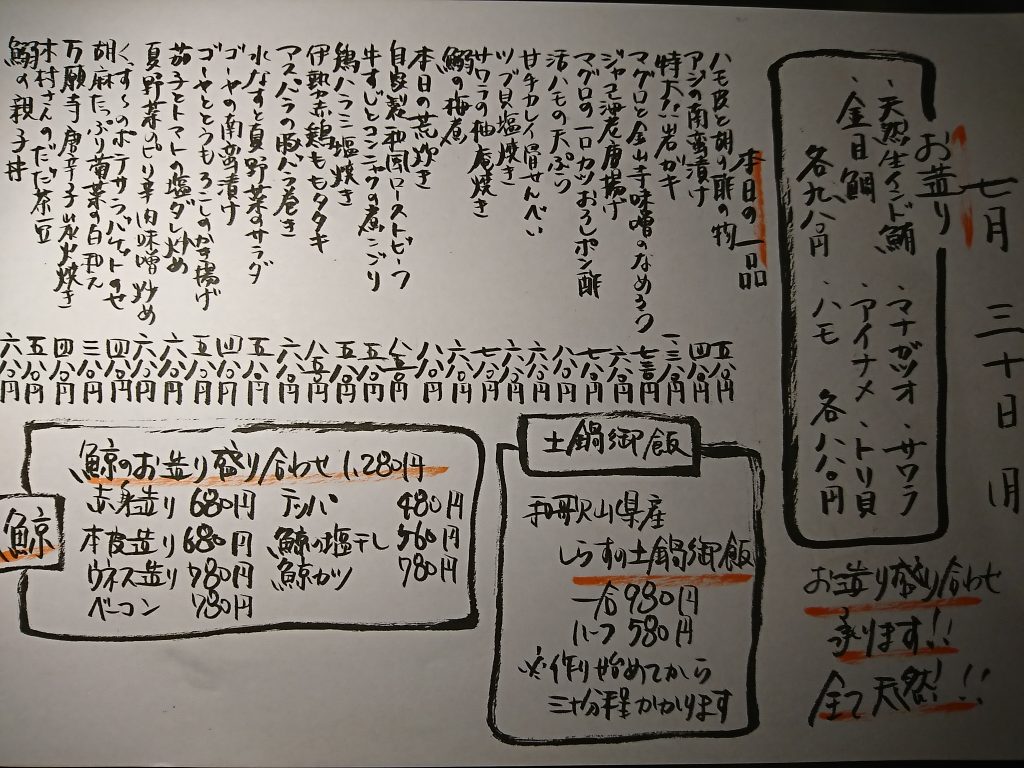 七月 三十日 月
お造り
・天然生インド鮪 ・マナガツオ ・サワラ
・金目鯛 ・アイナメ ・トリ貝
各九八〇円 ・ハモ 各八八〇円
お造り盛り合わせ
承ります!!
全て天然!!!
本日の一品
ハモ皮と胡瓜の酢の物 五八〇円
アジの南蛮漬け 四八〇円
特大!!岩ガキ
マグロと金山寺味噌のなめろう
ジャコ海老唐揚げ
マグロの一口カツおろしポン酢
活ハモの天ぷら
甘手カレイ一畳せんべい
ツブ貝塩焼き
サワラの柚庵焼き
鰯の梅煮
本日の荒炊き
自家製和風ローストビーフ
牛すじとコンニャクの煮こごり
鶏ハラミ塩焼き
伊勢赤鶏ももタタキ
アスパラの豚バラ巻き
水なすと夏野菜のサラダ
ゴーヤの南蛮漬け
ゴーヤととうもろこしのかき揚げ
茄子とトマトの塩ダレ炒め
夏野菜のピリ辛肉味噌炒め
くんすけのポテサラバケットのせ
胡麻たっぷり菊菜の白和え
万願寺唐辛子炭火焼き
木村さんのだだ茶豆
鰯の親子丼 六八〇円
土鍋御飯
和歌山県産
しらすの土鍋御飯
一合 980円
ハーフ 580円
※作り始めてから
三十分程かかります
鯨
鯨のお造り盛り合わせ 1,280円
赤身造り 680円 テッパ 480円
本皮造り 680円 鯨の塩干し 560円
ウネス造り 780円 鯨カツ 780円
ベーコン 780円